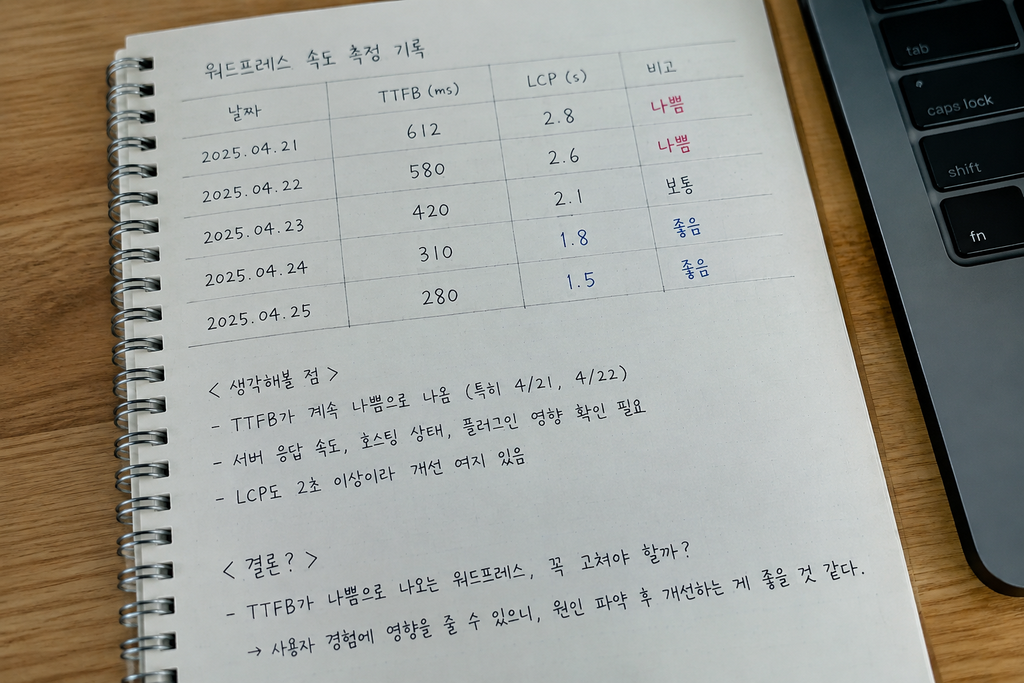 워드프레스 속도 측정 기록
날짜 TTFB (ms) LCP (s) 비고
2025.04.21 612 2.8 나쁨
2025.04.22 580 2.6 나쁨
2025.04.23 420 2.1 보통
2025.04.24 310 1.8 좋음
2025.04.25 280 1.5 좋음
< 생각해볼 점 >
- TTFB가 계속 나쁨으로 나옴 (특히 4/21, 4/22)
- 서버 응답 속도, 호스팅 상태, 플러그인 영향 확인 필요
- LCP도 2초 이상이라 개선 여지 있음
< 결론? >
- TTFB가 나쁨으로 나오는 워드프레스, 꼭 고쳐야 할까?
→ 사용자 경험에 영향을 줄 수 있으니, 원인 파악 후 개선하는 게 좋을 것 같다.
tab
caps lock
shift
fn